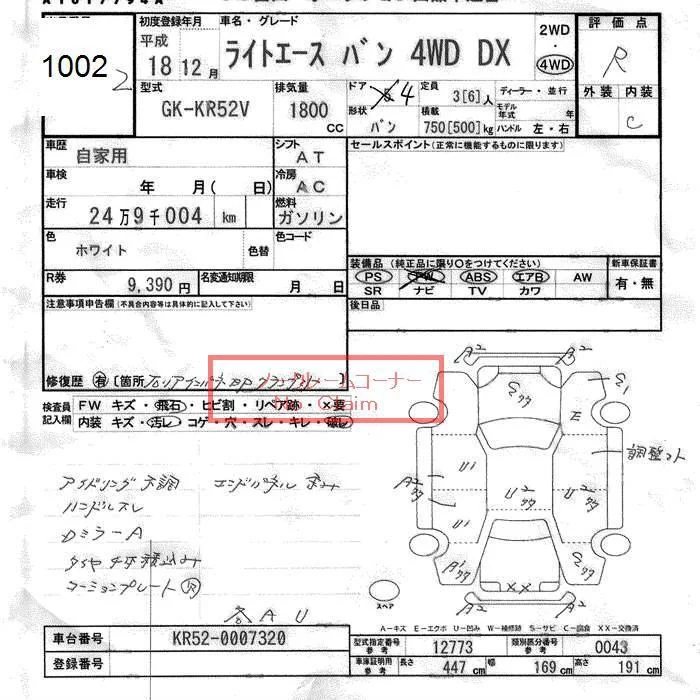 1002
2
初度登録年月
平成
18 12 月
車名・グレード
ライトエース バン 4WD DX
2WD
・
4WD
評価点
R
外装 内装
C
型式
GK-KR52V
排気量
1800
cc
ドア
5 4
形状
バン
定員
3[6]人
積載
750[500]kg
ディーラー・並行
モデル年式 年
ハンドル 左・右
車歴
自家用
シフト
AT
車検
年 月( 日)
冷房
AC
走行
24万9千004 km
燃料
ガソリン
色
ホワイト
色替
色コード
R券
9,390 円
名変通知期限
月 日
セールスポイント(正常に機能するものに限ります)
装備品(純正品に限り○をつけてください)
新車保証書
PS PW ABS エアB AW
SR ナビ TV カワ
有・無
後日品
注意事項申告欄(不具合内容等は具体的に記入して下さい)
修復歴 有 [箇所
ノークレームコーナー
No Claim
検査員
記入欄
FW キズ・飛石・ヒビ割・リペア跡・×要
内装 キズ・汚し・コゲ・穴・スレ・キレ・破し
アイドリング不調
エンドパネル歪み
ハンドルスレ
Dミラー A
タイヤ 4本積込み
コーションプレート
各 A U
A2
A2
E1
E
U1
U1
A2
U2
U2
調整キレ
XX
A2
A2
スペア
A-キズ E-エクボ U-凹み W-補修跡 S-サビ C-腐食 XX-交換済
車台番号
KR52-0007320
登録番号
型式指定番号
参考
12773
類別区分番号
参考
0043
車庫証明用
参考
長さ
447 cm
幅
169 cm
高さ
191 cm